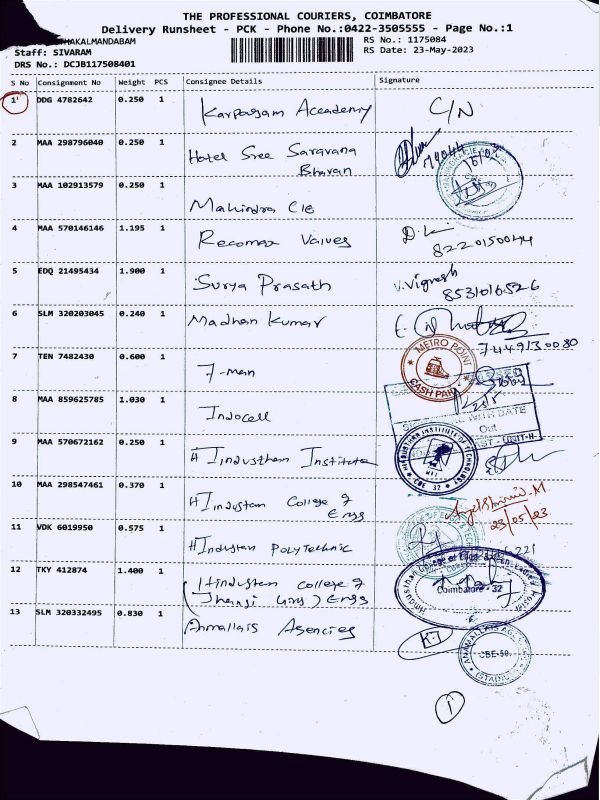 THE PROFESSIONAL COURIERS, COIMBATORE
Delivery Runsheet - PCK - Phone No.:0422-3505555 - Page No.:1
RS No.: 1175084
Staff: SIVARAM
RS Date: 23-May-2023
DRS No.: DCJB117508401
S No Consignment No Weight PCS Consignee Details Signature
1 DDG 4782642 0.250 1 Karpagam Academy C/N
2 MAA 298796040 0.250 1 Hotel Sree Saravana
Bhavan
3 MAA 102913579 0.250 1 Mahindra CIE
4 MAA 570146146 1.195 1 Recomax Valves
5 EDQ 21495434 1.900 1 Surya Prasath V. Vignesh
8531016526
6 SLM 320203045 0.240 1 Madhan Kumar
7449130080
7 TEN 7482430 0.600 1 7-man
METRO POINT
CASH PAID
8 MAA 859625785 1.030 1 Indocell
WITH DATE
Out
9 MAA 570672162 0.250 1 Hindusthan Institute
HINDUSTHAN INSTITUTE OF TECHNOLOGY
CBE 32
10 MAA 298547461 0.370 1 Hindustan College of
Engg
23/05/23
11 VDK 6019950 0.575 1 Hindustan Polytechnic
12 TKY 412874 1.400 1 (Hindustan College of
Engg
Coimbatore - 32
13 SLM 320332495 0.830 1 Anmallais Agencies
CBE-50.
1